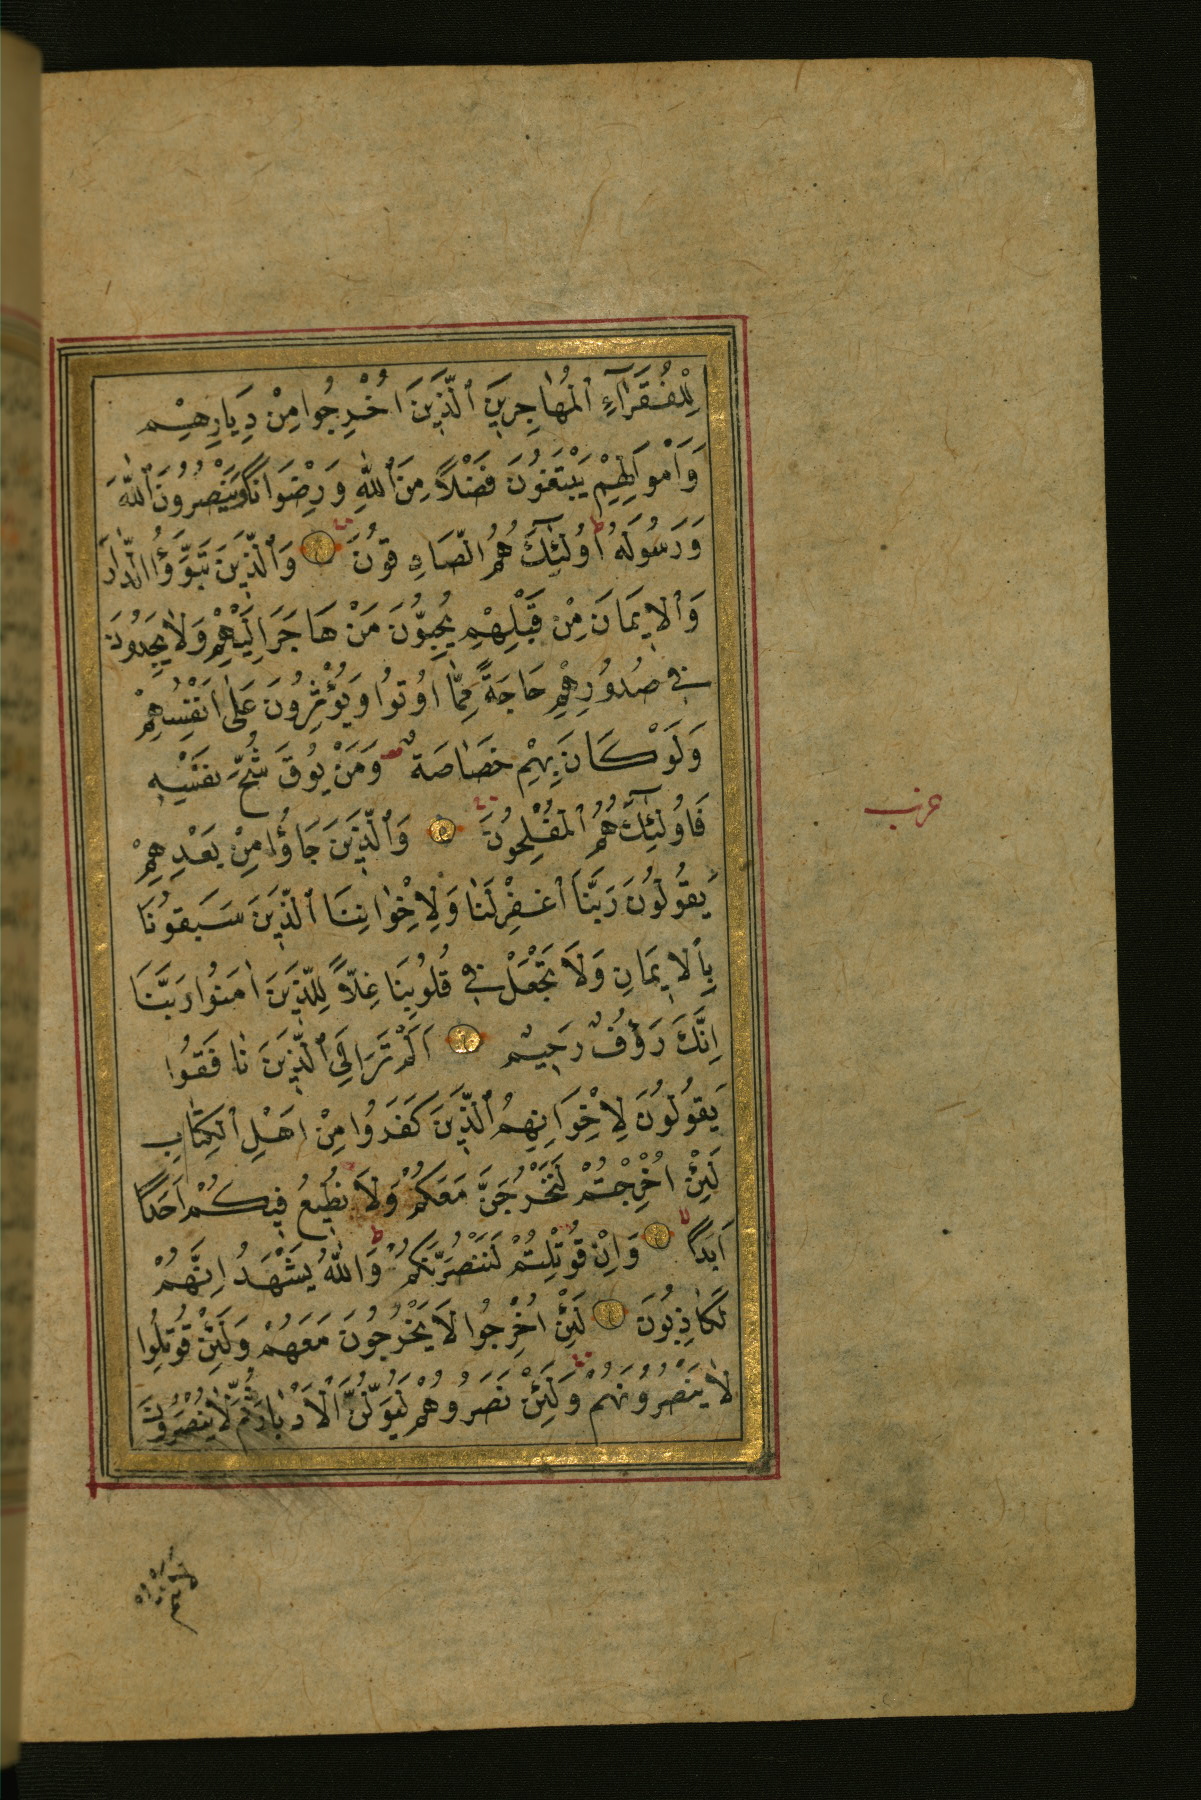 لِلْفُقَرَآءِ ٱلْمُهَاجِرِينَ ٱلَّذِينَ اُخْرِجُوا مِنْ دِيَارِهِمْ
وَاَمْوَالِهِمْ يَبْتَغُونَ فَضْلاً مِنَ ٱللهِ وَرِضْوَانًا وَيَنْصُرُونَ ٱللهَ
وَرَسُولَهُ ط اُولٰئِكَ هُمُ الصَّادِقُونَ وَٱلَّذِينَ تَبَوَّؤُا الدَّارَ
وَٱلْاِيمَانَ مِنْ قَبْلِهِمْ يُحِبُّونَ مَنْ هَاجَرَ اِلَيْهِمْ وَلَا يَجِدُونَ
فِي صُدُورِهِمْ حَاجَةً مِمَّا اُوتُوا وَيُؤْثِرُونَ عَلٰى اَنْفُسِهِمْ
وَلَوْ كَانَ بِهِمْ خَصَاصَةٌ وَمَنْ يُوقَ شُحَّ نَفْسِهِ
فَاُولٰئِكَ هُمُ ٱلْمُفْلِحُونَ وَٱلَّذِينَ جَاؤُا مِنْ بَعْدِهِمْ
يَقُولُونَ رَبَّنَا ٱغْفِرْ لَنَا وَلِاِخْوَانِنَا ٱلَّذِينَ سَبَقُونَا
بِٱلْاِيمَانِ وَلَا تَجْعَلْ فِي قُلُوبِنَا غِلاًّ لِلَّذِينَ اٰمَنُوا رَبَّنَا
اِنَّكَ رَؤُفٌ رَحِيمٌ اَلَمْ تَرَ اِلَى ٱلَّذِينَ نَافَقُوا
يَقُولُونَ لِاِخْوَانِهِمُ ٱلَّذِينَ كَفَرُوا مِنْ اَهْلِ ٱلْكِتَابِ
لَئِنْ اُخْرِجْتُمْ لَنَخْرُجَنَّ مَعَكُمْ وَلَا نُطِيعُ فِيكُمْ اَحَدًا
اَبَدًا وَاِنْ قُوتِلْتُمْ لَنَنْصُرَنَّكُمْ ط وَاللهُ يَشْهَدُ اِنَّهُمْ
لَكَاذِبُونَ لَئِنْ اُخْرِجُوا لَا يَخْرُجُونَ مَعَهُمْ وَلَئِنْ قُوتِلُوا
لَا يَنْصُرُونَهُمْ وَلَئِنْ نَصَرُوهُمْ لَيُوَلُّنَّ ٱلْاَدْبَارَ ثُمَّ لَا يُنْصَرُونَ
حزب